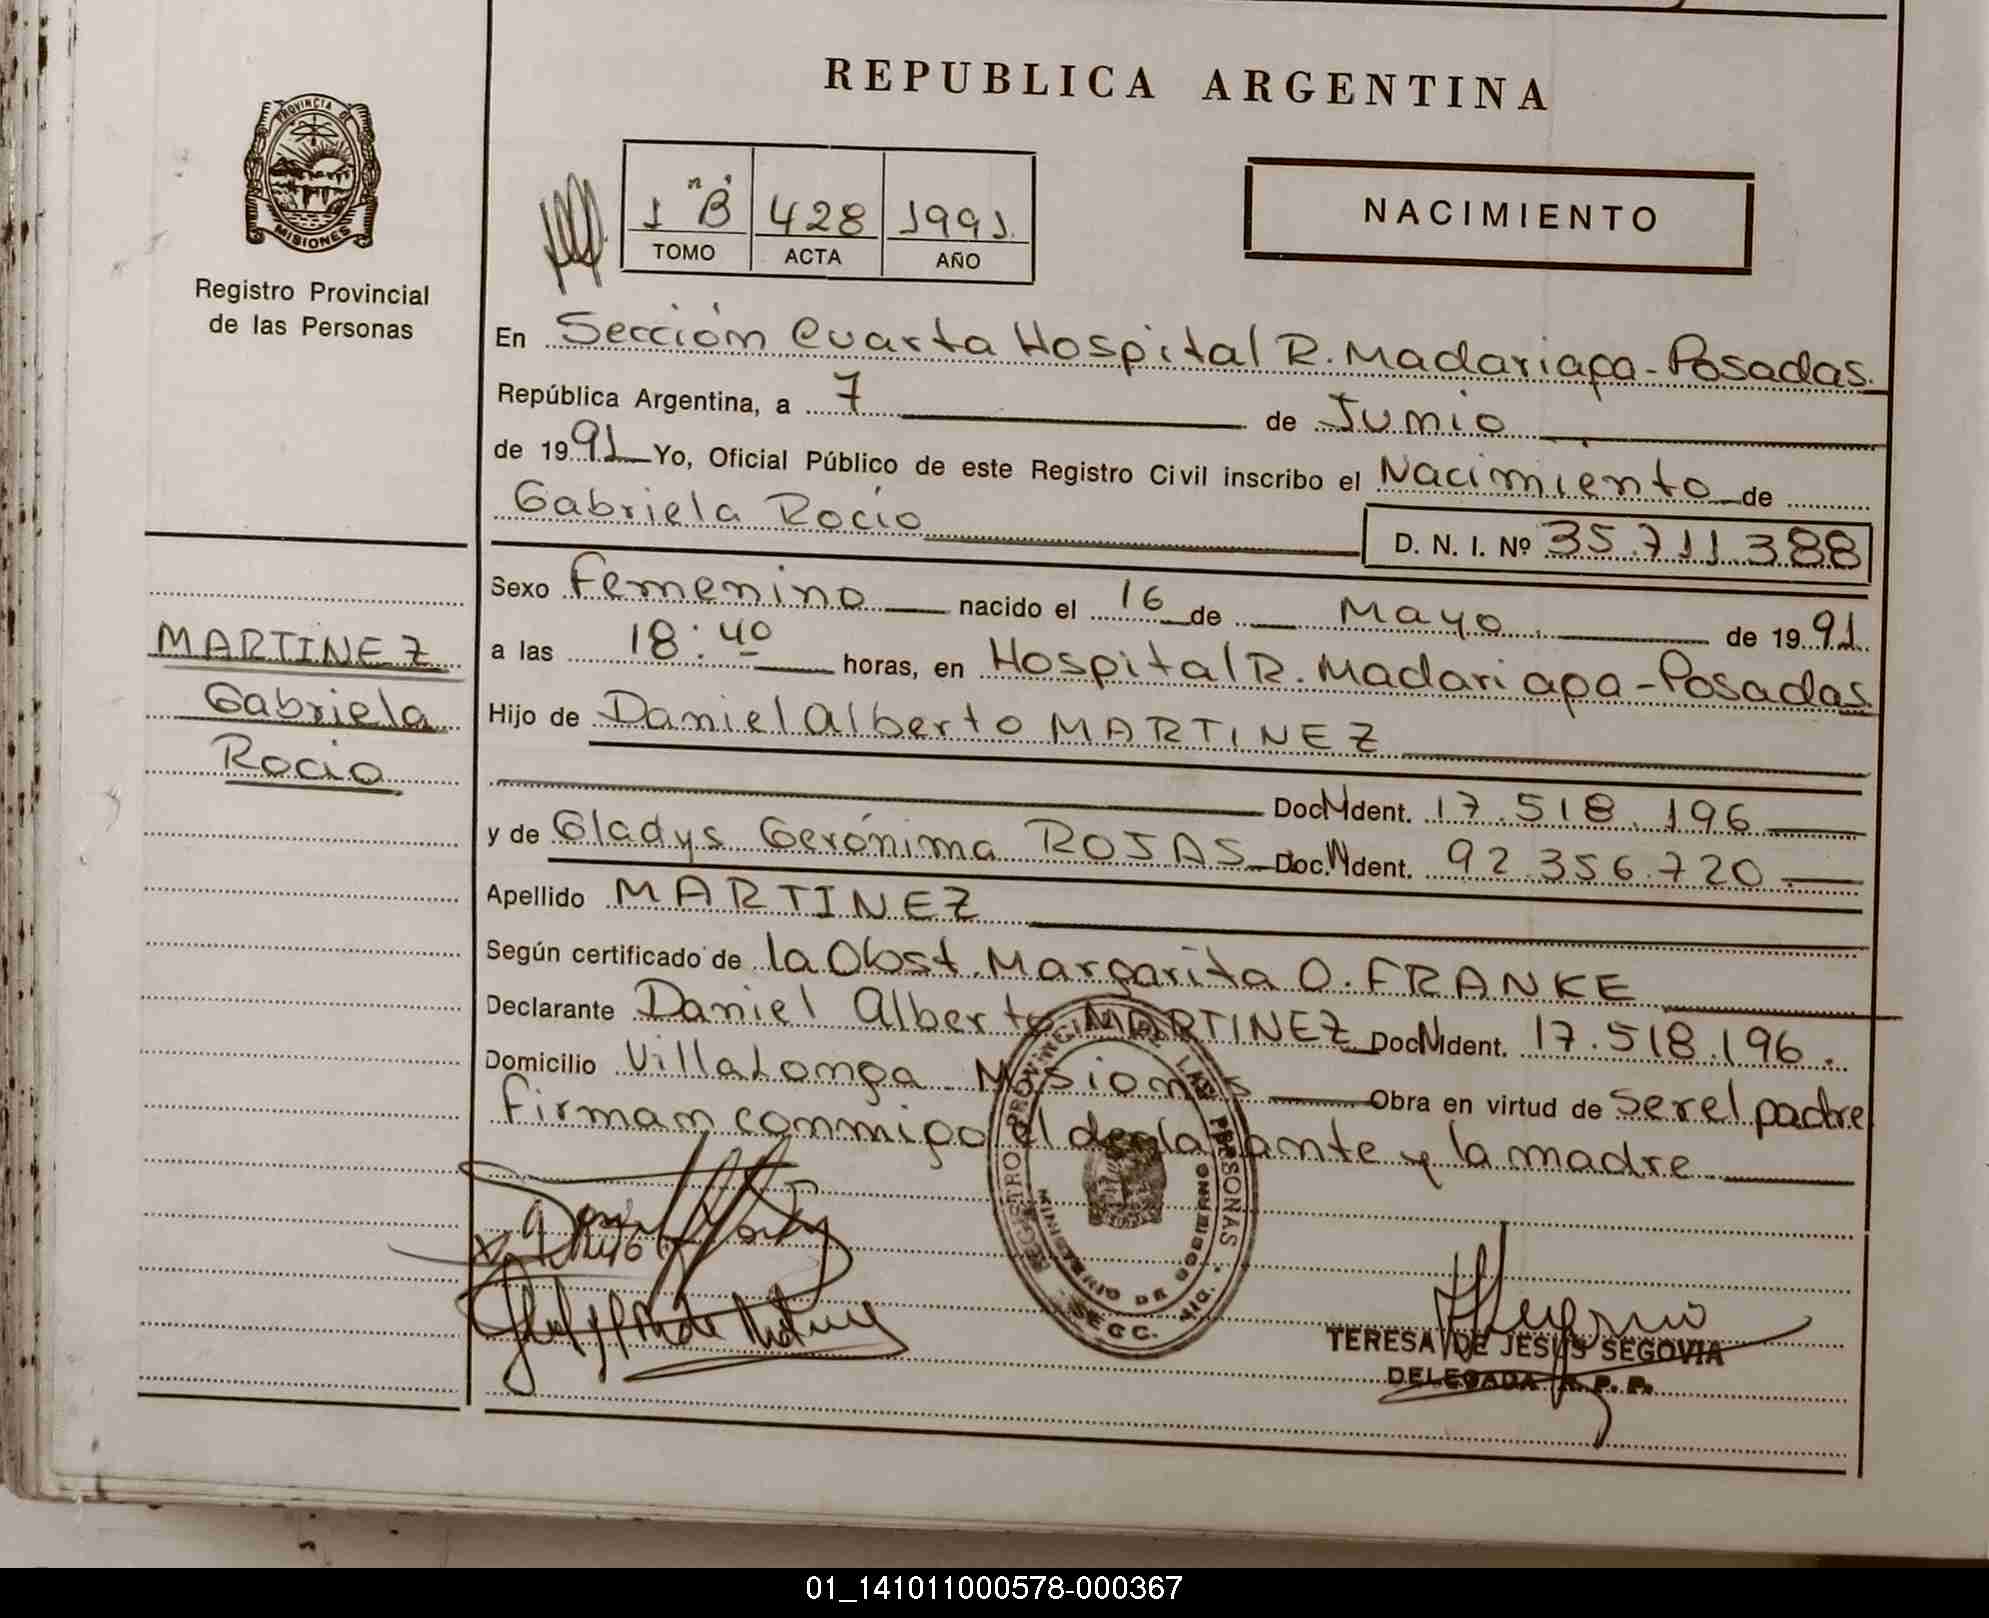 REPUBLICA ARGENTINA
PROVINCIA DE
MISIONES
Registro Provincial
de las Personas
1 "B" 428 1991.
TOMO ACTA AÑO
NACIMIENTO
En Sección Cuarta Hospital R. Madariaga - Posadas.
República Argentina, a 7 de Junio
de 1991 Yo, Oficial Público de este Registro Civil inscribo el Nacimiento de
Gabriela Rocío
D. N. I. Nº 35.711.388
Sexo Femenino nacido el 16 de Mayo de 1991.
a las 18:40 horas, en Hospital R. Madariaga - Posadas.
Hijo de Daniel Alberto MARTINEZ
Doc. Ident. 17.518.196
y de Gladys Gerónima ROJAS Doc. Ident. 92.356.720.
Apellido MARTINEZ
Según certificado de la Obst. Margarita O. FRANKE
Declarante Daniel Alberto MARTINEZ Doc. Ident. 17.518.196.
Domicilio Villa Longa - Misiones Obra en virtud de ser el padre
Firman conmigo el declarante y la madre
MARTINEZ
Gabriela
Rocio
REGISTRO PROVINCIAL DE LAS PERSONAS
MINISTERIO DE GOBIERNO
SECC.
TERESA DE JESUS SEGOVIA
DELEGADA R. P. P.
01_141011000578-000367